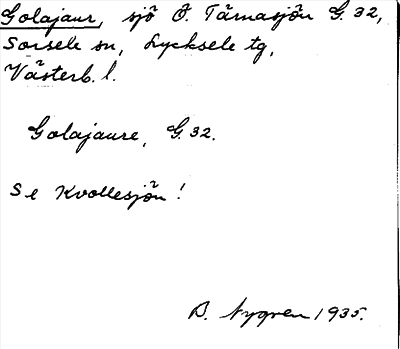 Golajaur, sjö Ö. Tärnasjön G. 32,
Sorsele sn, Lycksele tg,
Västerb. l.
Golajaure, G. 32.
Se Kvollesjön!
B. Nygren 1935.